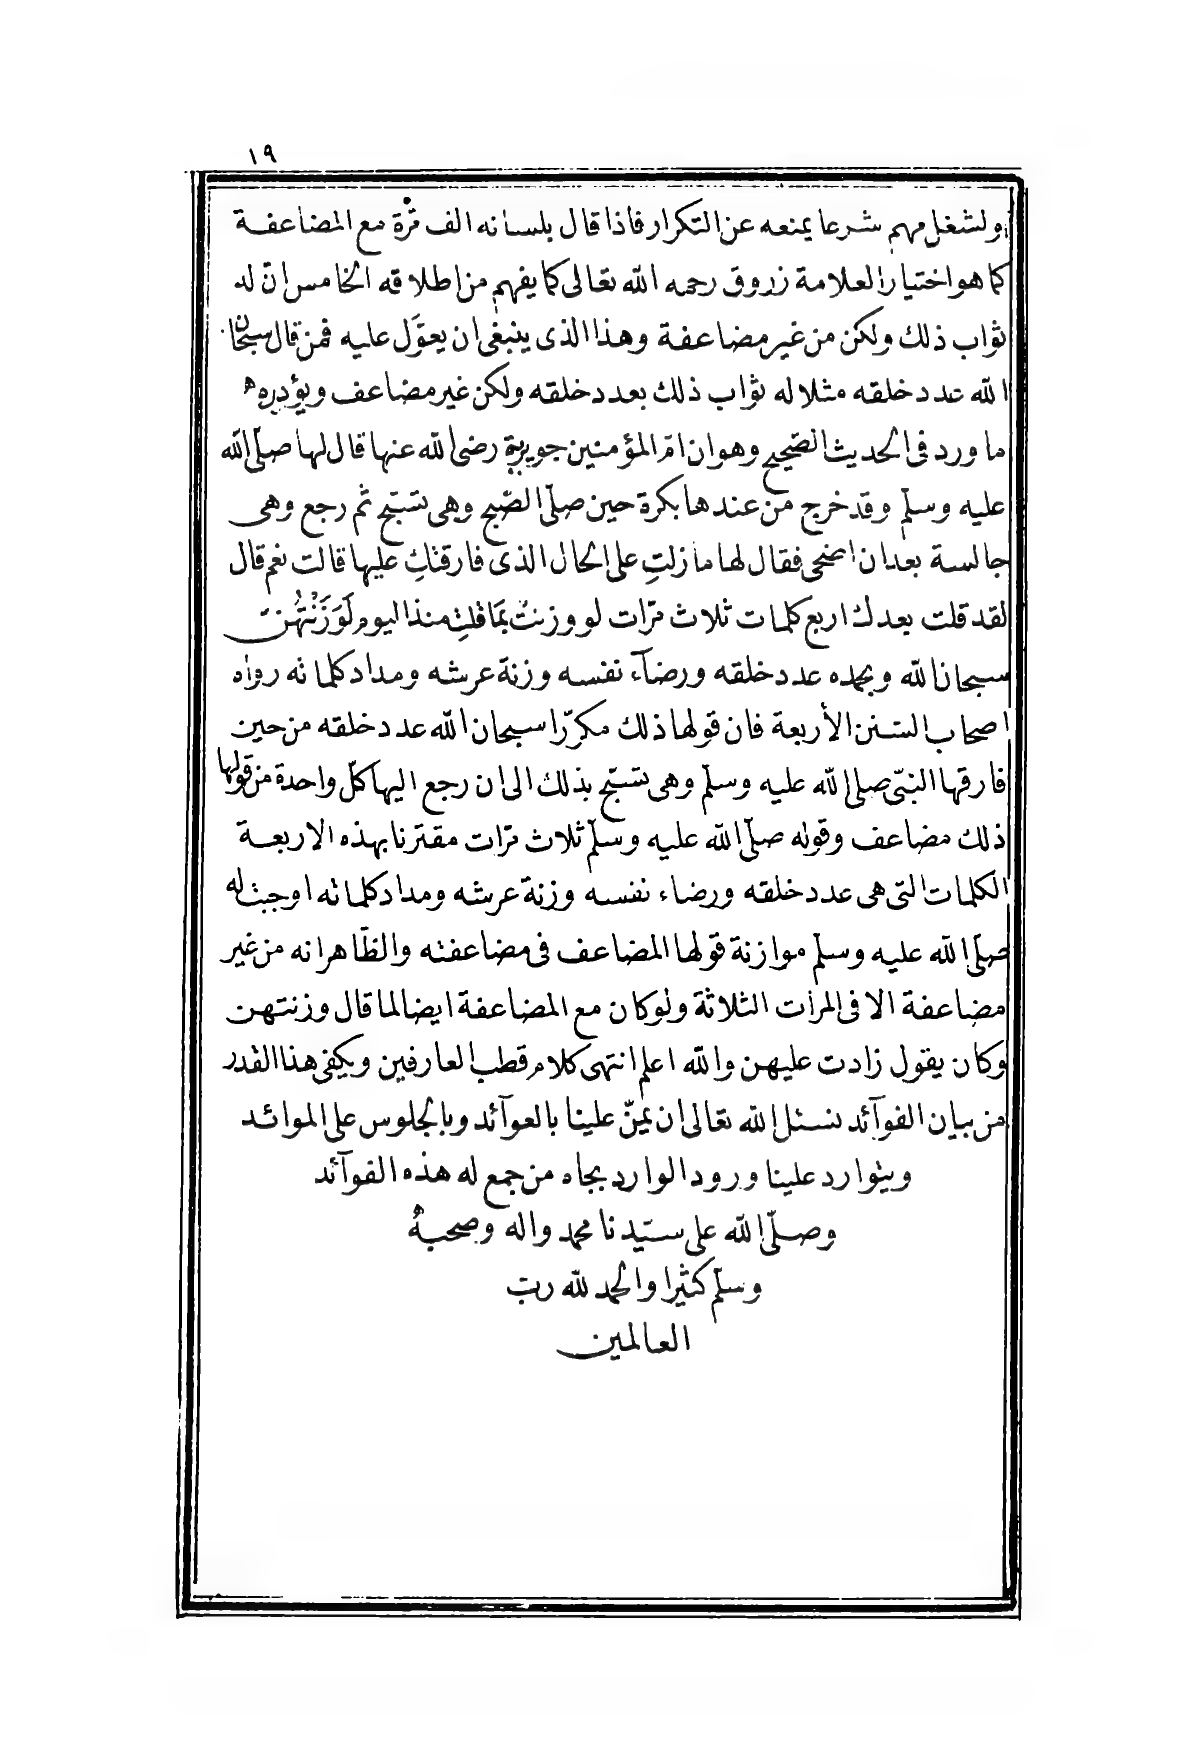 ١٩
اولشغل مهم شرعا يمنعه عن التكرار فاذا قال بلسانه الف مرّة مع المضاعفة
كما هو اختيار العلامة زروق رحمه الله تعالى كما يفهم من اطلاقه الخامس انّ له
ثواب ذلك ولكن من غير مضاعفة وهذا الذى ينبغى ان يعوّل عليه فمن قال سبحان
الله عدد خلقه مثلا له ثواب ذلك بعدد خلقه ولكن غير مضاعف ويؤدره
ما ورد فى الحديث الصّحيح وهو ان امّ المؤمنين جويرية رضى الله عنها قال لها صلّى الله
عليه وسلّم وقد خرج من عندها بكرة حين صلّى الصّبح وهى تسبّح ثم رجع وهى
جالسة بعد ان اضحى فقال لها ما زلتِ على الحال الذى فارقتكِ عليها قالت نعم قال
لقد قلت بعدك اربع كلمات ثلاث مرّات لو وزنت بما قلتِ منذ اليوم لَوَزَنَتْهُنّ
سبحان الله وبحمده عدد خلقه ورضآء نفسه وزنة عرشه ومداد كلماته رواه
اصحاب السنن الأربعة فان قولها ذلك مكررّا سبحان الله عدد خلقه من حين
فارقها النبّى صلى الله عليه وسلّم وهى تسبّح بذلك الى ان رجع اليها كلّ واحدة من قولها
ذلك مضاعف وقوله صلّى الله عليه وسلّم ثلاث مرّات مقترنا بهذه الاربعة
الكلمات التى هى عدد خلقه ورضاء نفسه وزنة عرشه ومداد كلماته اوجبت له
صلّى الله عليه وسلّم موازنة قولها المضاعف فى مضاعفته والظّاهر انه من غير
مضاعفة الا فى المرات الثلاثة ولو كان مع المضاعفة ايضا لما قال وزنتهن
وكان يقول زادت عليهن والله اعلم انتهى كلام قطب العارفين ويكفى هذا القدر
من بيان الفوآئد نسئل الله تعالى ان يمنّ علينا بالعوآئد وبالجلوس على الموائد
ويتوارد علينا ورود الوارد بجاه من جمع له هذه الفوآئد
وصلّى الله على سيّدنا محمد واله وصحبهُ
وسلّم كثيرا والحمد لله ربّ
العالمين